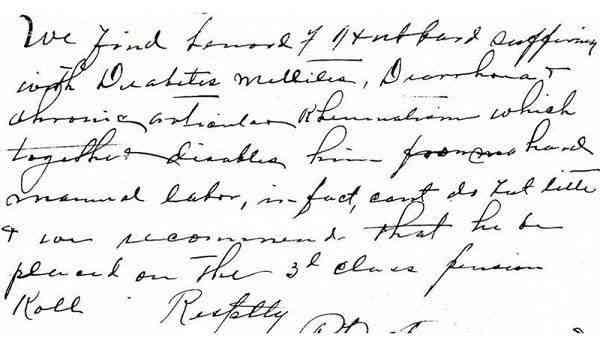 We find Leonard J Hubbard suffering
with Diabetes Mellites, Diarrhoea &
chronic articular Rheumatism which
together disables him from hard
manual labor, in fact, cant do but little
& we recommend that he be
placed on the 3d class pension
Roll. Resptly